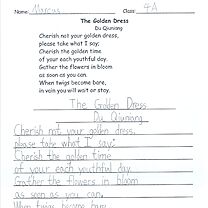 Name: Marcus Class: 4A
The Golden Dress
Du Qiuniang
Cherish not your golden dress,
please take what I say;
Cherish the golden time
of your each youthful day.
Gather the flowers in bloom
as soon as you can.
When twigs become bare,
in vain you will wait or stay.
The Golden Dress
Du Qiuniang
Cherish not your golden dress,
please take what I say;
Cherish the golden time
of your each youthful day.
Gather the flowers in bloom
as soon as you can.
When twigs become bare,